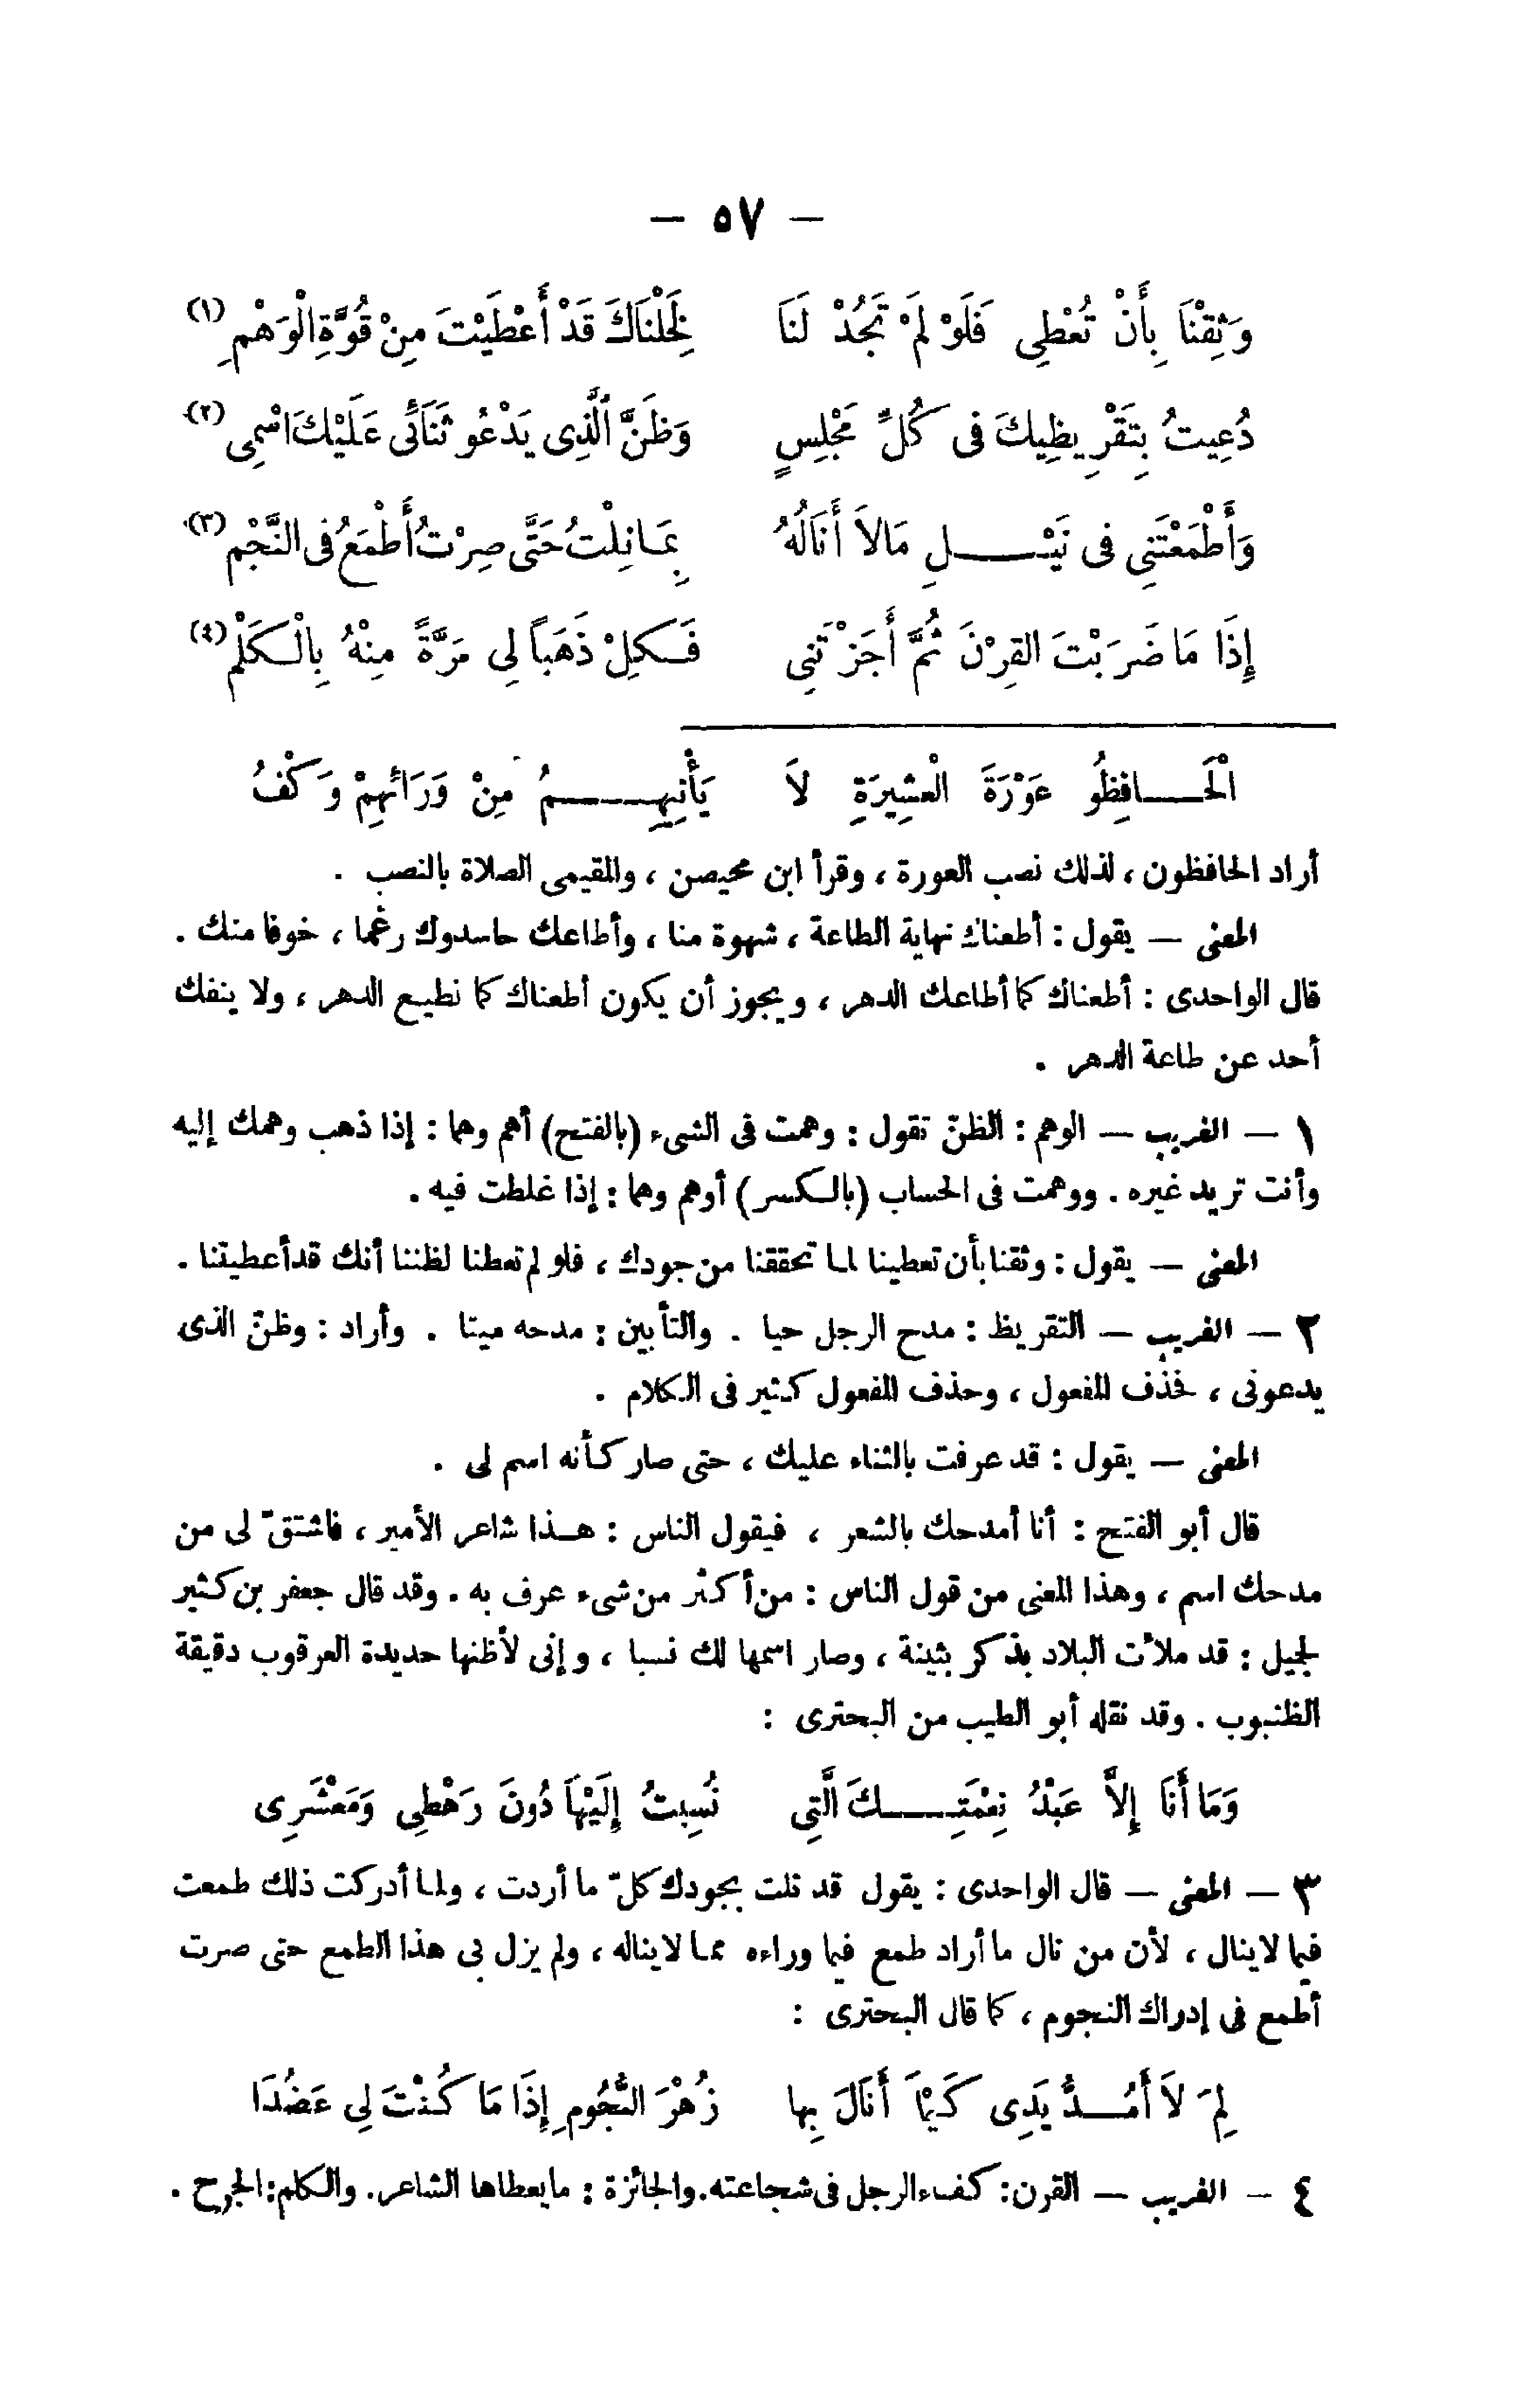 — ٥٧ —
وَثِقْنَا بِأَنْ تُعْطِى فَلَوْ لَمْ تَجُدْ لَنَا لَخِلْنَاكَ قَدْ أَعْطَيْتَ مِنْ قُوَّةِ الْوَهْمِ (١)
دُعِيتُ بِتَقْرِيظِيكَ فى كُلِّ مَجْلِسٍ وَظَنَّ الَّذِى يَدْعُو ثَنَائى عَلَيْكَ اسْمِى (٢)
وَأَطْمَعْتَنِى فى نَيْـــلِ مَالاَ أَنَالُهُ بِمَا نِلْتُ حَتَّى صِرْتُ أَطْمَعُ فى النَّجْمِ (٣)
إِذَا مَا ضَرَبْتَ القِرْنَ ثُمَّ أَجَزْتَنِى فَـكِلْ ذَهَباً لِى مَرَّةً مِنْهُ بِالْـكَلْمِ (٤)
الْحَـــافِظُو عَوْرَةَ الْعَشِيرَةِ لاَ يَأْتِيهِـــمُ مِنْ وَرَائِهِمْ وَكْفُ
أراد الحافظون ، لذلك نصب العورة ، وقرأ ابن محيصن ، والمقيمى الصلاة بالنصب .
المعنى — يقول : أطعناك نهاية الطاعة ، شهوة منا ، وأطاعك حاسدوك رغما ، خوفا منك .
قال الواحدى : أطعناك كما أطاعك الدهر ، ويجوز أن يكون أطعناك كما نطيع الدهر ، ولا ينفك
أحد عن طاعة الدهر .
١ — الغريب — الوهم : الظنّ تقول : وهمت فى الشىء (بالفتح) أهم وهما : إذا ذهب وهمك إليه
وأنت تريد غيره . ووهمت فى الحساب (بالـكسر) أوهم وهما : إذا غلطت فيه .
المعنى — يقول : وثقنا بأن تعطينا لما تحققنا من جودك ، فلو لم تعطنا لظننا أنك قد أعطيتنا .
٢ — الغريب — التقريظ : مدح الرجل حيا . والتأبين : مدحه ميتا . وأراد : وظنّ الذى
يدعونى ، فحذف المفعول ، وحذف المفعول كثير فى الـكلام .
المعنى — يقول : قد عرفت بالثناء عليك ، حتى صار كأنه اسم لى .
قال أبو الفتح : أنا أمدحك بالشعر ، فيقول الناس : هـذا شاعر الأمير ، فاشتقّ لى من
مدحك اسم ، وهذا المعنى من قول الناس : من أكثر من شىء عرف به . وقد قال جعفر بن كثير
لجميل : قد ملأت البلاد بذكر بثينة ، وصار اسمها لك نسبا ، وإنى لأظنها حديدة العرقوب دقيقة
الظنبوب . وقد نقله أبو الطيب من البحترى :
وَمَا أَنَا إِلاَّ عَبْدُ نِعْمَتِـــكَ الَّتِى نُسِبْتُ إِلَيْهَا دُونَ رَهْطِى وَمَعْشَرِى
٣ — المعنى — قال الواحدى : يقول قد نلت بجودك كلّ ما أردت ، ولما أدركت ذلك طمعت
فيما لاينال ، لأن من نال ما أراد طمع فيما وراءه مما لايناله ، ولم يزل بى هذا الطمع حتى صرت
أطمع فى إدراك النجوم ، كما قال البحترى :
لِمَ لاَ أَمُـــدُّ يَدِى كَيْمَا أَنَالَ بِهَا زُهْرَ النُّجُومِ إِذَا مَا كُنْتَ لِى عَضُدَا
٤ — الغريب — القرن : كفء الرجل فى شجاعته . والجائزة : مايعطاها الشاعر . والكلم : الجرح .